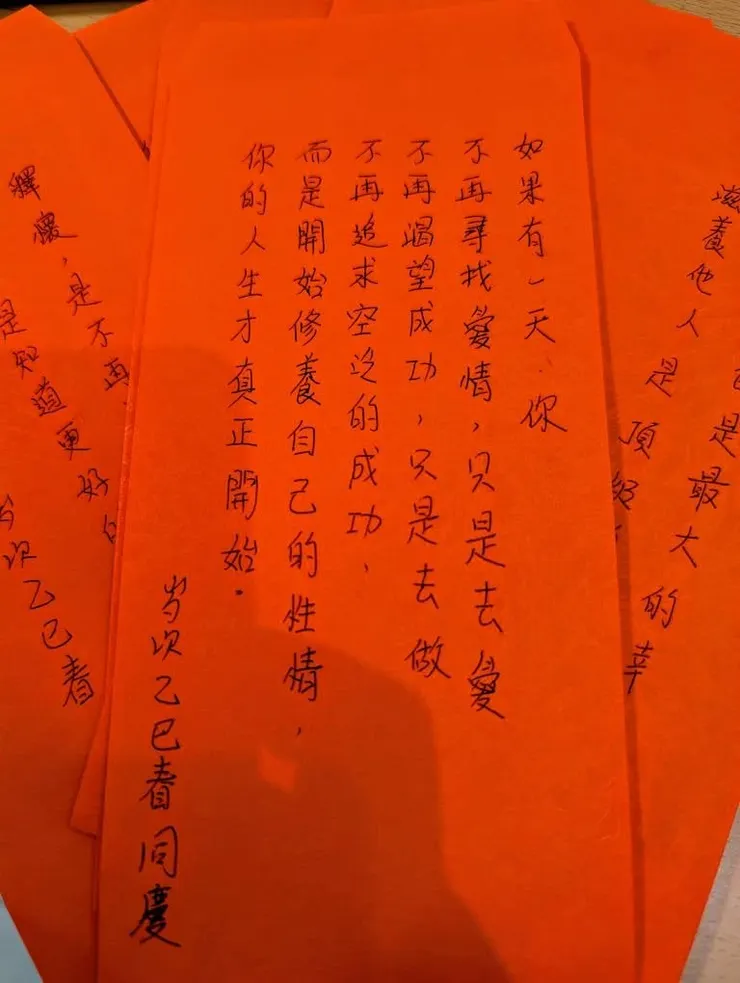 己是最大的幸
滋養他人是頂級
如果有一天.你
不再尋找愛情,只是去愛
不再渴望成功,只是去做
不再追求空泛的成功、
而是開始修養自己的性情,
你的人生才真正開始.
岁次乙巳春同慶
釋懷,是不再
是知道更好的
岁次乙巳春